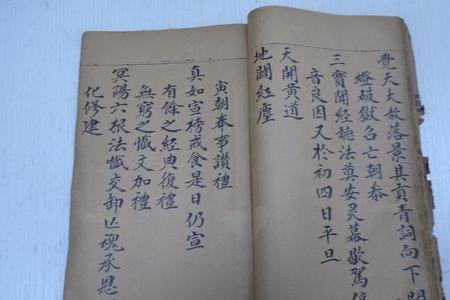 覺天大赦落景具貢青詞向下
燈破獄召亡朝叅
三寳聞經聽法奠安灵幕歇駕
音良因又於初四日平旦
天開黄道
地闢紅塵
寅朝奉事讃禮
真如宣榜戒食是日仍宣
有餘之經典復禮
無窮之懴文加禮
冥陽六根法懴交卸亾魂承恩
化修建